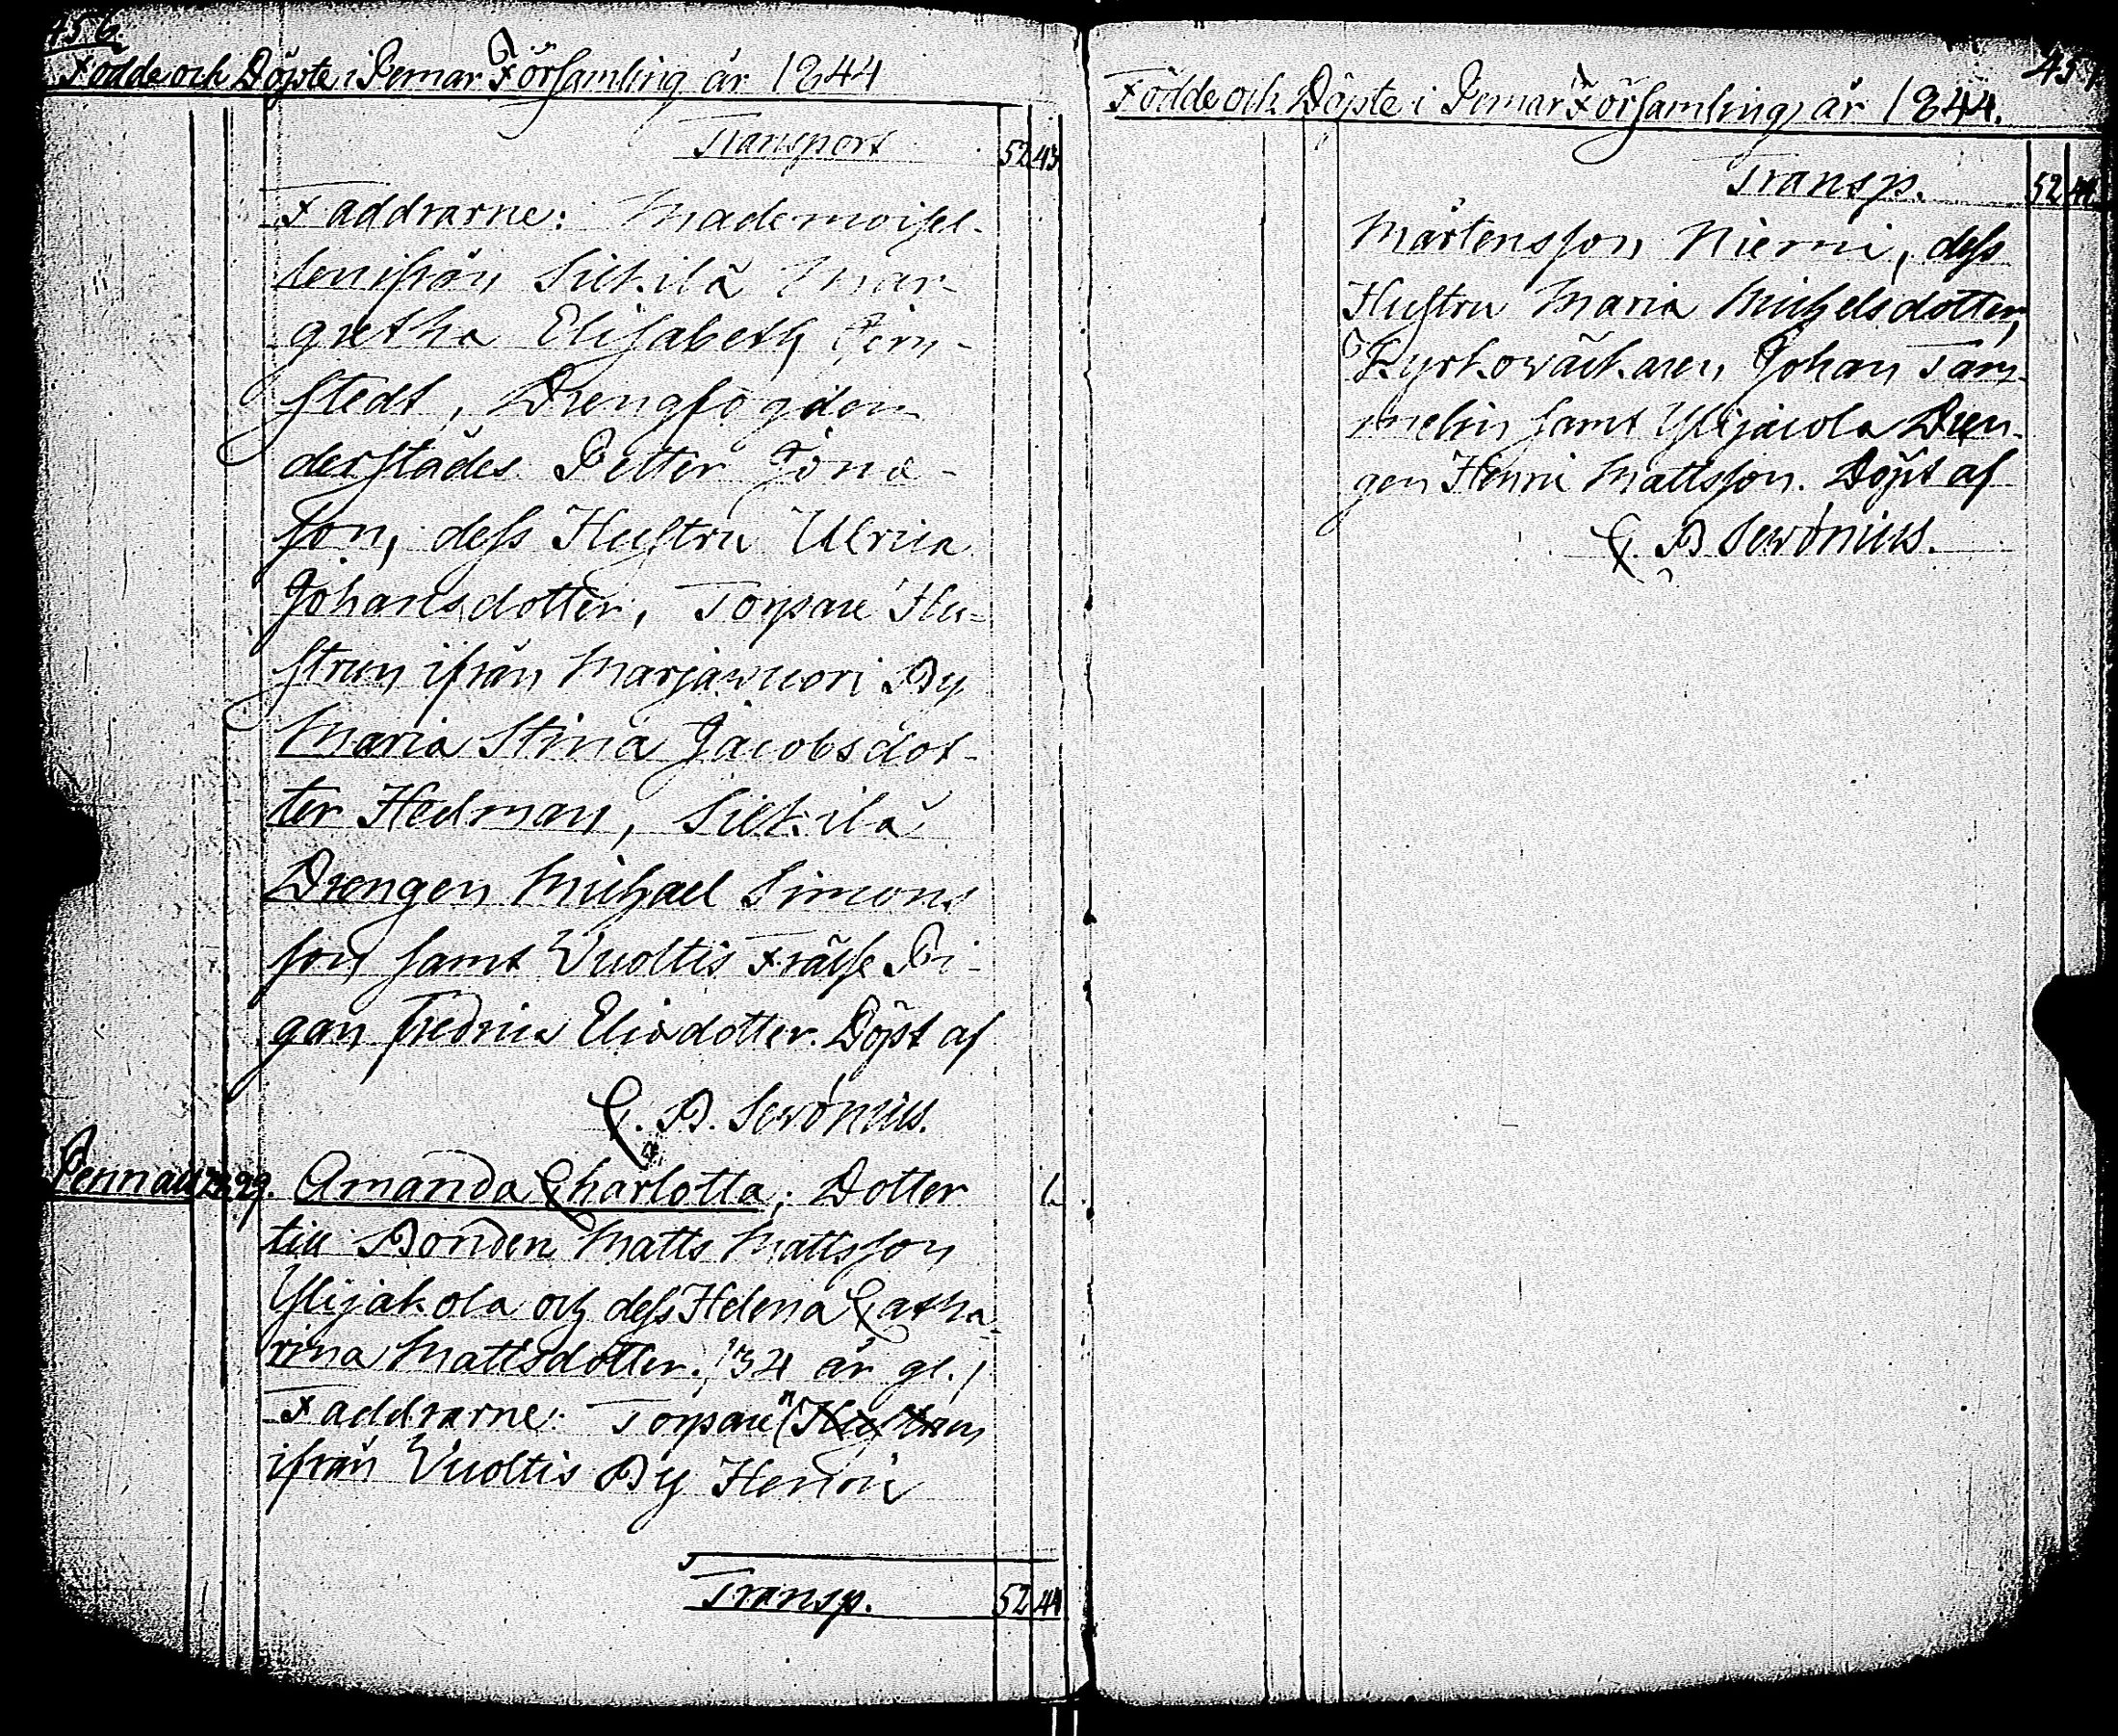 456.
Födde och Döpte i Pemar Församling år 1844
Transport 52 43
Faddrarne: Mademoisel-
len ifrån Silkilä Mar-
gretha Elisabeth
stedt, Drengfogden
derstädes Petter Jöna-
son, dess Hustru Ulrica
Johansdotter, Torpare Hu-
strun ifrån Marjawuori By
Maria Stina Jacobsdot-
ter Hedman, Silkilä
Drengen Michael Simons
son samt Vuoltis Frälse Pi-
gan Fredrica Eliædotter. Döpt af
C. B. Sewonius.
29. Amanda Charlotta, Dotter 1.
till Bonden Matts Mattsson
Ylijakola och dess Helena Catha-
rina Mattsdotter. /34 år gl./
Faddrarne: Torparen Hustrun
ifrån Vuoltis By Henric
Transp. 52 44
457
Födde och Döpte i Pemar Församling år 1844.
Transp. 52 44
Mårtensson Niemi, dess
Hustru Maria Michelsdotter,
Kyrkowäktaren Johan Tam-
melin samt Ylijacola Dren-
gen Henric Mattsson. Döpt af
C. B Sewonius.